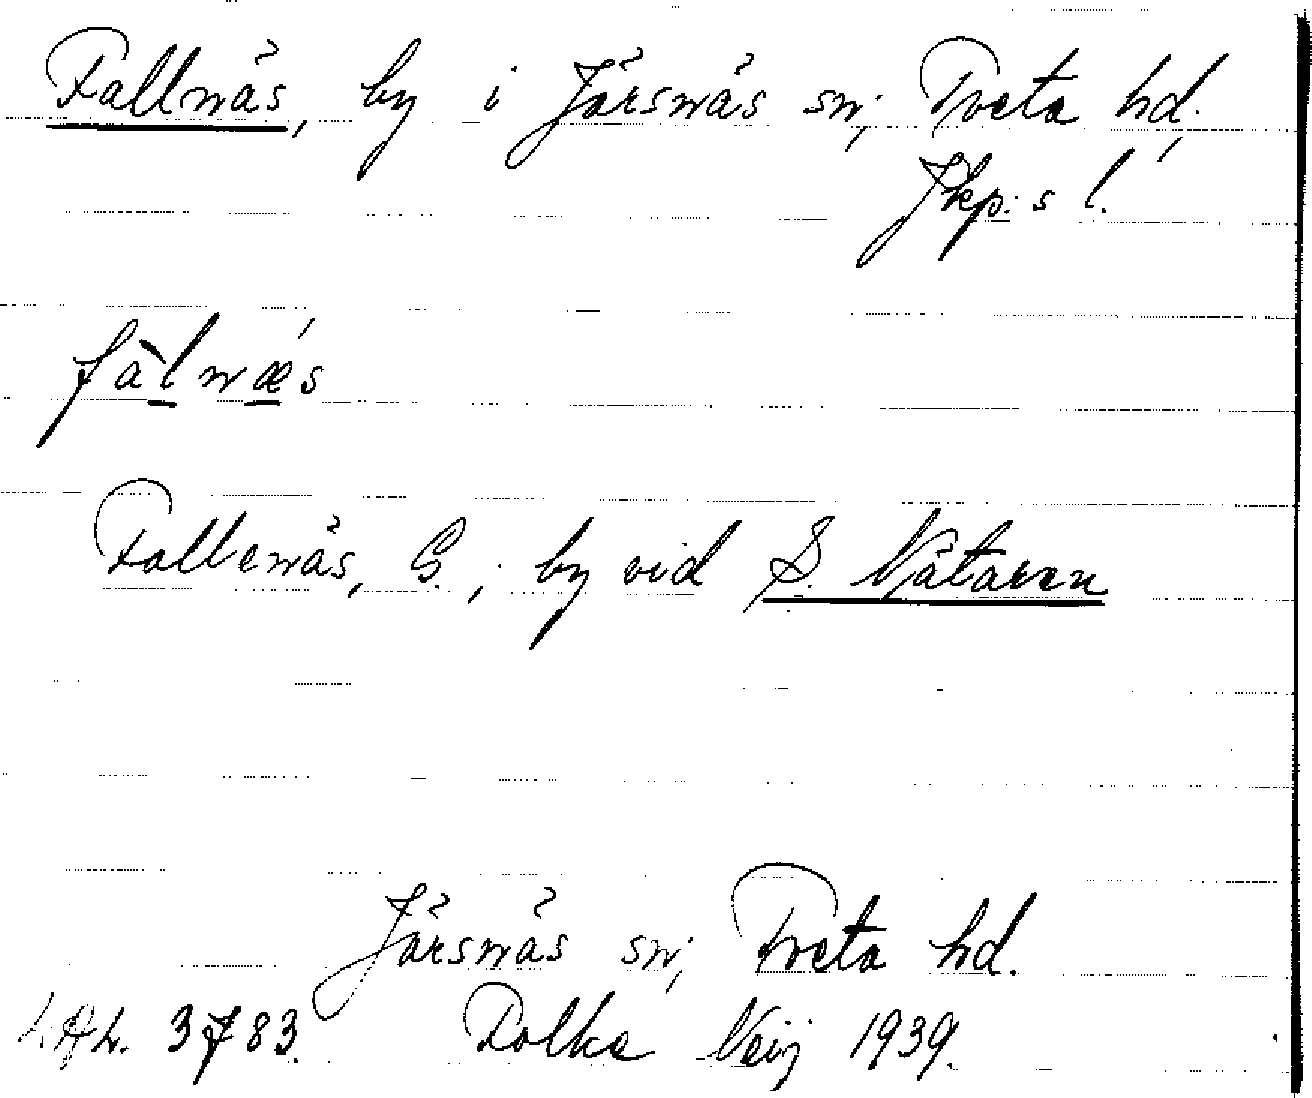 Fallnäs, by i Järsnäs sn, Tveta hd,
Jkp:s l.
fàlnæ´s
Fallenäs, S., by vid S. Nätaren
Järsnäs sn, Tveta hd.
3783. Folke 1939.